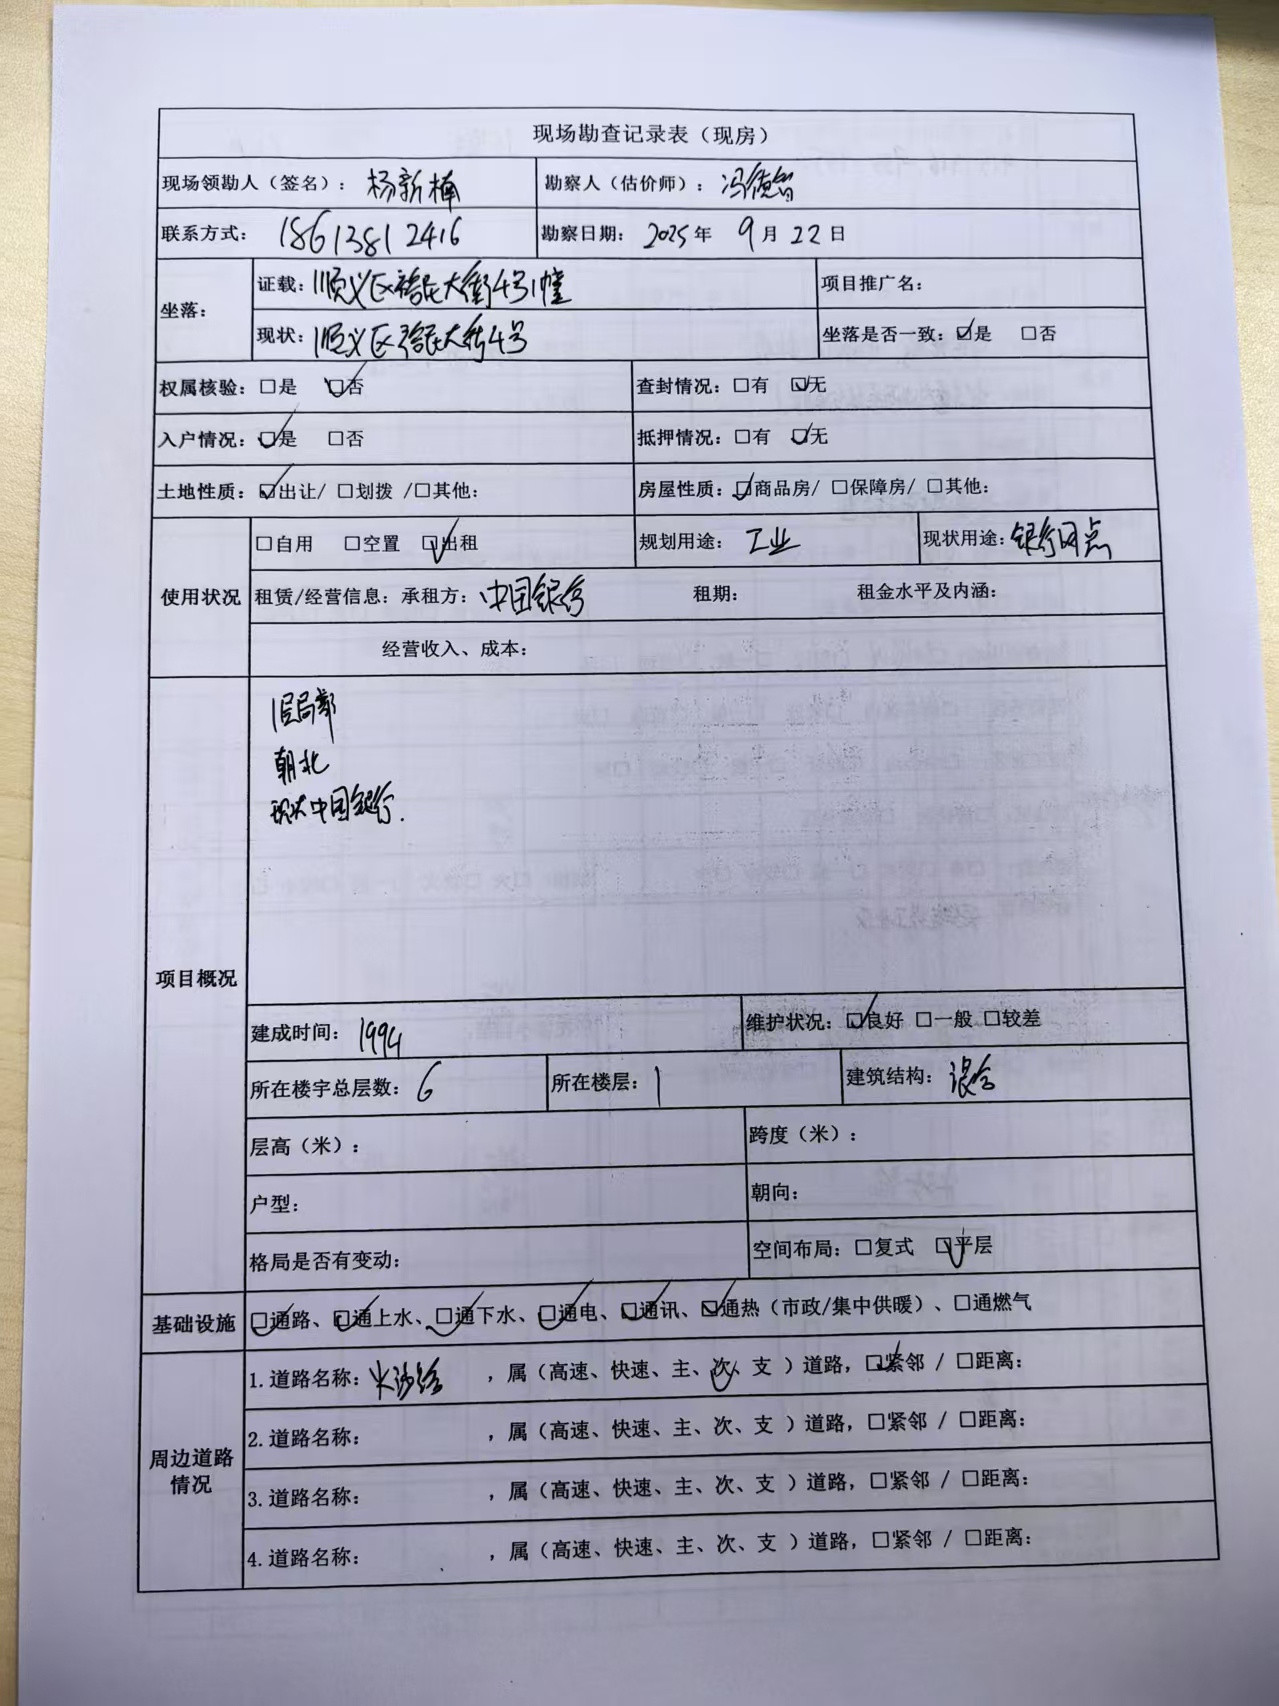 现场勘查记录表（现房）
现场领勘人（签名）： 杨新楠 勘察人（估价师）： 冯德智
联系方式： 18613812416 勘察日期： 2025年 9月 22日
坐落： 证载：顺义区裕民大街4号1幢 项目推广名：
现状：顺义区裕民大街4号 坐落是否一致：☑是 □否
权属核验：□是 ☑否 查封情况：□有 ☑无
入户情况：☑是 □否 抵押情况：□有 ☑无
土地性质：☑出让/ □划拨 /□其他： 房屋性质：☑商品房/ □保障房/ □其他：
使用状况 □自用 □空置 ☑出租 规划用途： 工业 现状用途：银行网点
租赁/经营信息：承租方：中国银行 租期： 租金水平及内涵：
经营收入、成本：
项目概况
1层局部
朝北
现状中国银行.
建成时间： 1994 维护状况：☑良好 □一般 □较差
所在楼宇总层数： 6 所在楼层： 1 建筑结构： 混合
层高（米）： 跨度（米）：
户型： 朝向：
格局是否有变动： 空间布局：□复式 ☑平层
基础设施 ☑通路、☑通上水、☑通下水、☑通电、☑通讯、☑通热（市政/集中供暖）、□通燃气
周边道路情况
1.道路名称： ，属（高速、快速、主、次、支 ）道路，☑紧邻 / □距离：
2.道路名称： ，属（高速、快速、主、次、支 ）道路，□紧邻 / □距离：
3.道路名称： ，属（高速、快速、主、次、支 ）道路，□紧邻 / □距离：
4.道路名称： ，属（高速、快速、主、次、支 ）道路，□紧邻 / □距离：